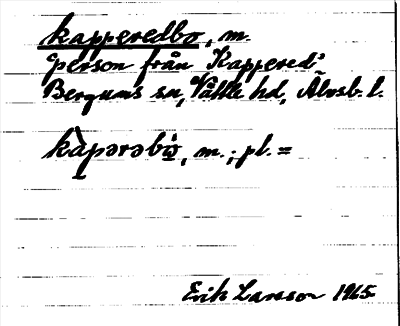 kapperedbo, m.
person från Kappered,
Bergums sn, Vättle hd, Älvsb. l.
kàpərəbὼ, m.; pl. =
Erik Larsson 1965